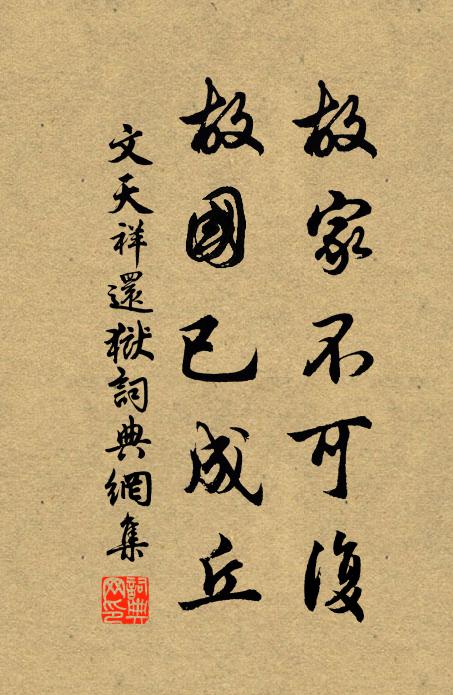 故家不可復
故國已成丘
文天祥還獄詞典網集
詞典网印